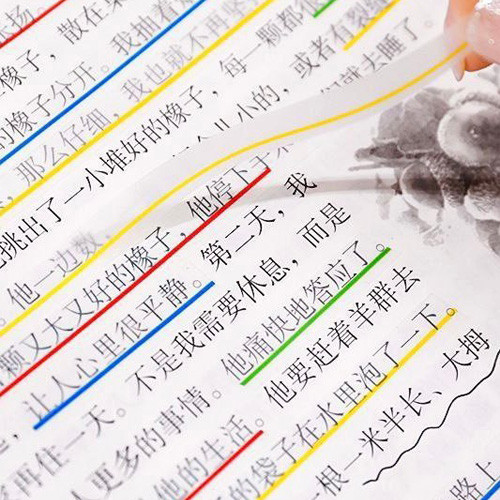 场。
橡子，散在桌
的橡子分开。我抽着
，那么仔细，我也就不再坚
挑出了一小堆好的橡子，每一颗都很
他一边数，个儿小的，或者有裂缝
颗又大又好的橡子，他停下手 们就去睡了
让人心里很平静。第二天，我
再住一天。不是我需要休息，而是
人更多的事情。他痛快地答应了。
他的生活。他要赶着羊群去
的袋子在水里泡了一下。
根一米半长、大拇
路上